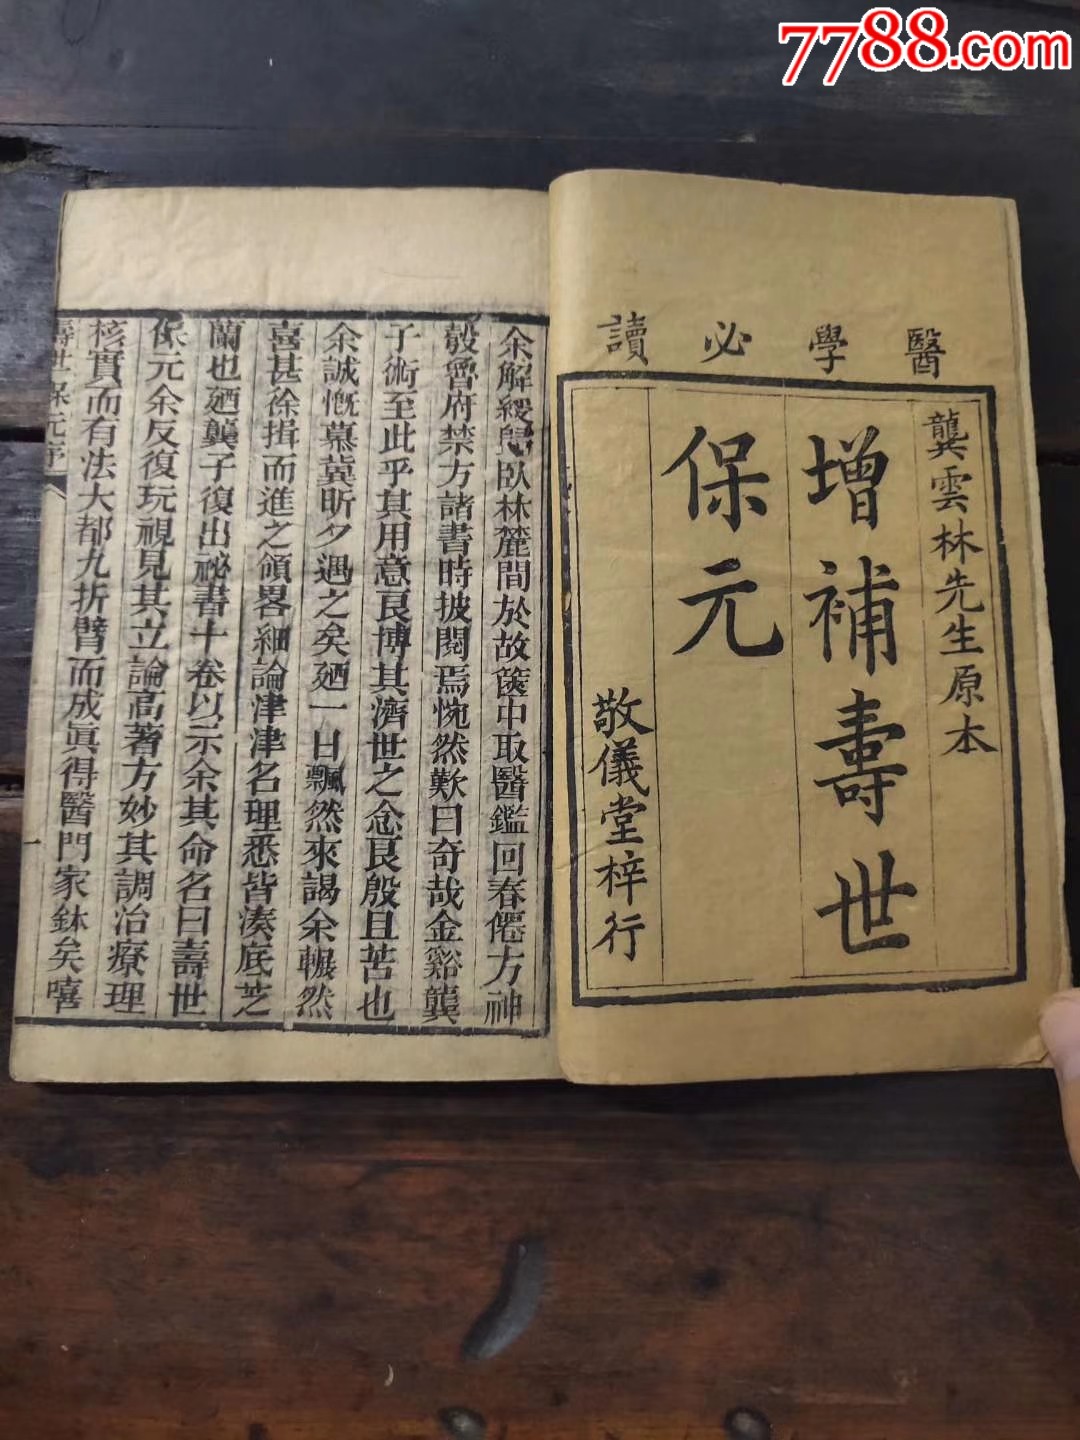 7788.com
醫學必讀
龔雲林先生原本
增補壽世
保元
敬儀堂梓行
余解綬歸臥林麓間於故篋中取醫鑑回春僊方神
彀魯府禁方諸書時披閱焉惋然歎曰奇哉金谿龔
子術至此乎其用意良博其濟世之念良殷且苦也
余誠慨慕冀昕夕遇之矣廼一日飄然來謁余輾然
喜甚徐揖而進之領畧細論津津名理悉皆湊底芝
蘭也廼龔子復出祕書十卷以示余其命名曰壽世
保元余反復玩視見其立論高著方妙其調治療理
核實而有法大都九折臂而成眞得醫門家鉢矣嘻
壽世保元序
一